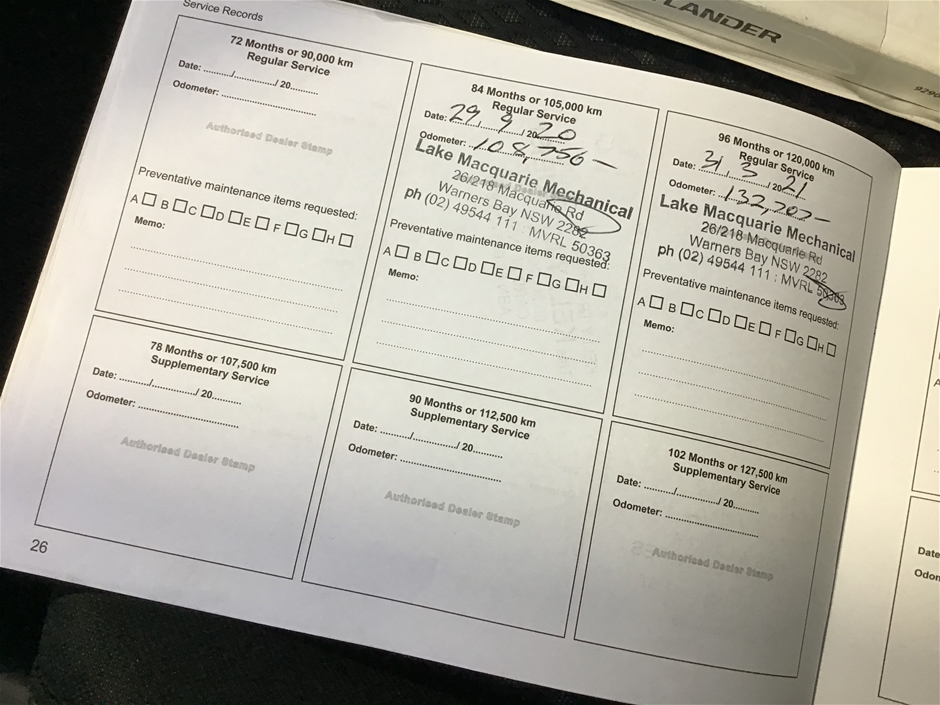 Service Records
TLANDER
9290
72 Months or 90,000 km
Regular Service
Date: ........../............../ 20..........
Odometer: ..............................
Authorised Dealer Stamp
Preventative maintenance items requested:
A □ B □ C □ D □ E □ F □ G □ H □
Memo:
84 Months or 105,000 km
Regular Service
Date: 29 / 9 / 2020
Odometer: 108,756 —
Lake Macquarie Mechanical
26/218 Macquarie Rd
Warners Bay NSW 2282
ph (02) 49544 111 : MVRL 50363
Preventative maintenance items requested:
A □ B □ C □ D □ E □ F □ G □ H □
Memo:
96 Months or 120,000 km
Regular Service
Date: 31 / 3 / 2021
Odometer: 132,707 —
Lake Macquarie Mechanical
26/218 Macquarie Rd
Warners Bay NSW 2282
ph (02) 49544 111 : MVRL 50363
Preventative maintenance items requested:
A □ B □ C □ D □ E □ F □ G □ H □
Memo:
78 Months or 107,500 km
Supplementary Service
Date: ........../............../ 20..........
Odometer: ..............................
Authorised Dealer Stamp
90 Months or 112,500 km
Supplementary Service
Date: ........../............../ 20..........
Odometer: ..............................
Authorised Dealer Stamp
102 Months or 127,500 km
Supplementary Service
Date: ........../............../ 20..........
Odometer: ..............................
Authorised Dealer Stamp
26
A
Date
Odon